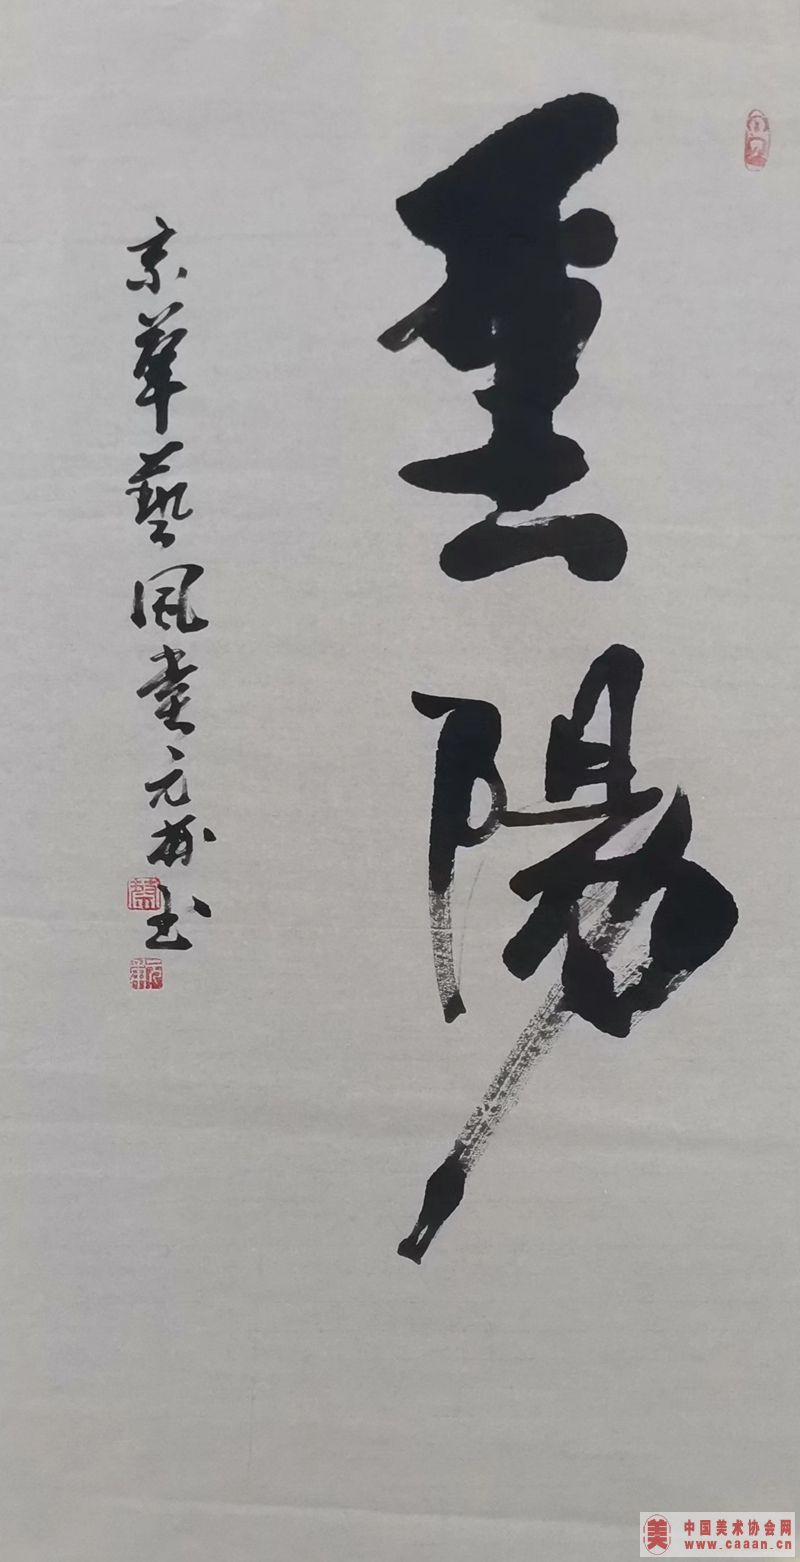 重陽
京華藝風堂元樹書
中国美术协会网
www.caaan.cn